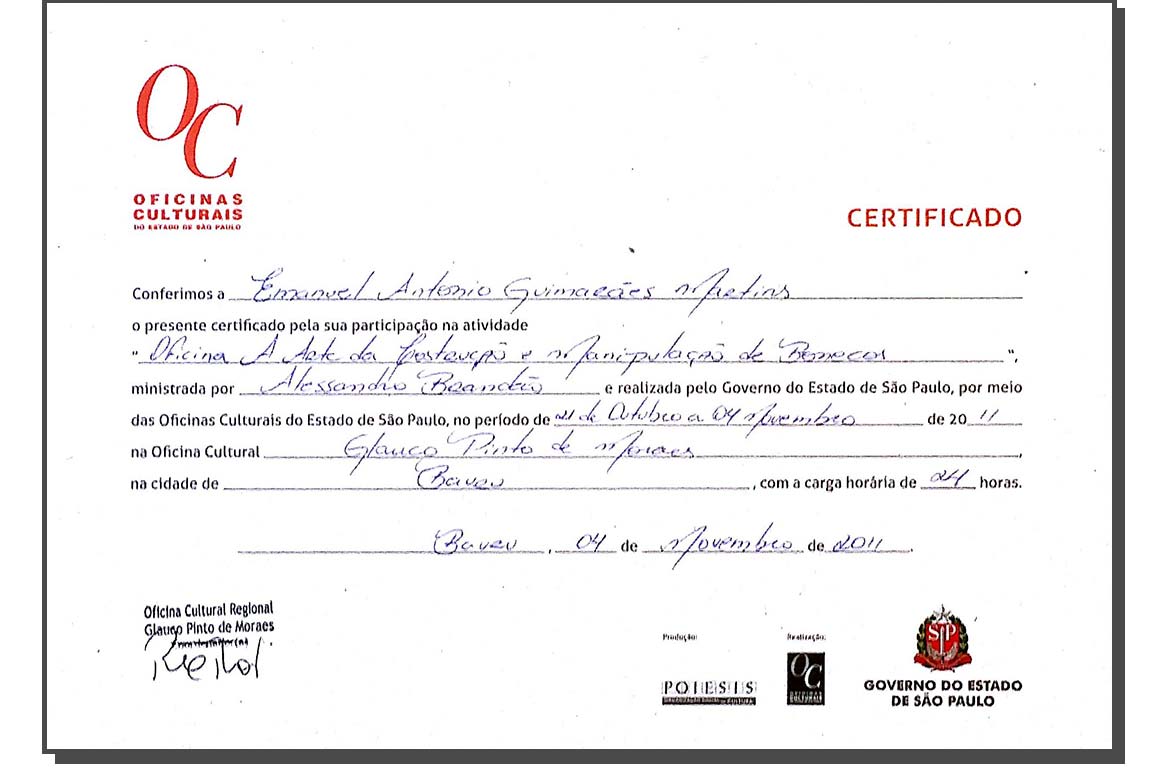 OC
OFICINAS
CULTURAIS
DO ESTADO DE SÃO PAULO
CERTIFICADO
Conferimos a Emanuel Antonio Guimarães Martins
o presente certificado pela sua participação na atividade
" Oficina A Arte da Construção e Manipulação de Bonecos ",
ministrada por Alessandro Brandão e realizada pelo Governo do Estado de São Paulo, por meio
das Oficinas Culturais do Estado de São Paulo, no período de 21 de Outubro a 04 Novembro de 2011
na Oficina Cultural Glauco Pinto de Moraes,
na cidade de Bauru, com a carga horária de 24 horas.
Bauru, 04 de Novembro de 2011.
Oficina Cultural Regional
Glauco Pinto de Moraes
Produção:
Realização:
POIESIS
OC
OFICINAS
CULTURAIS
SP
GOVERNO DO ESTADO
DE SÃO PAULO